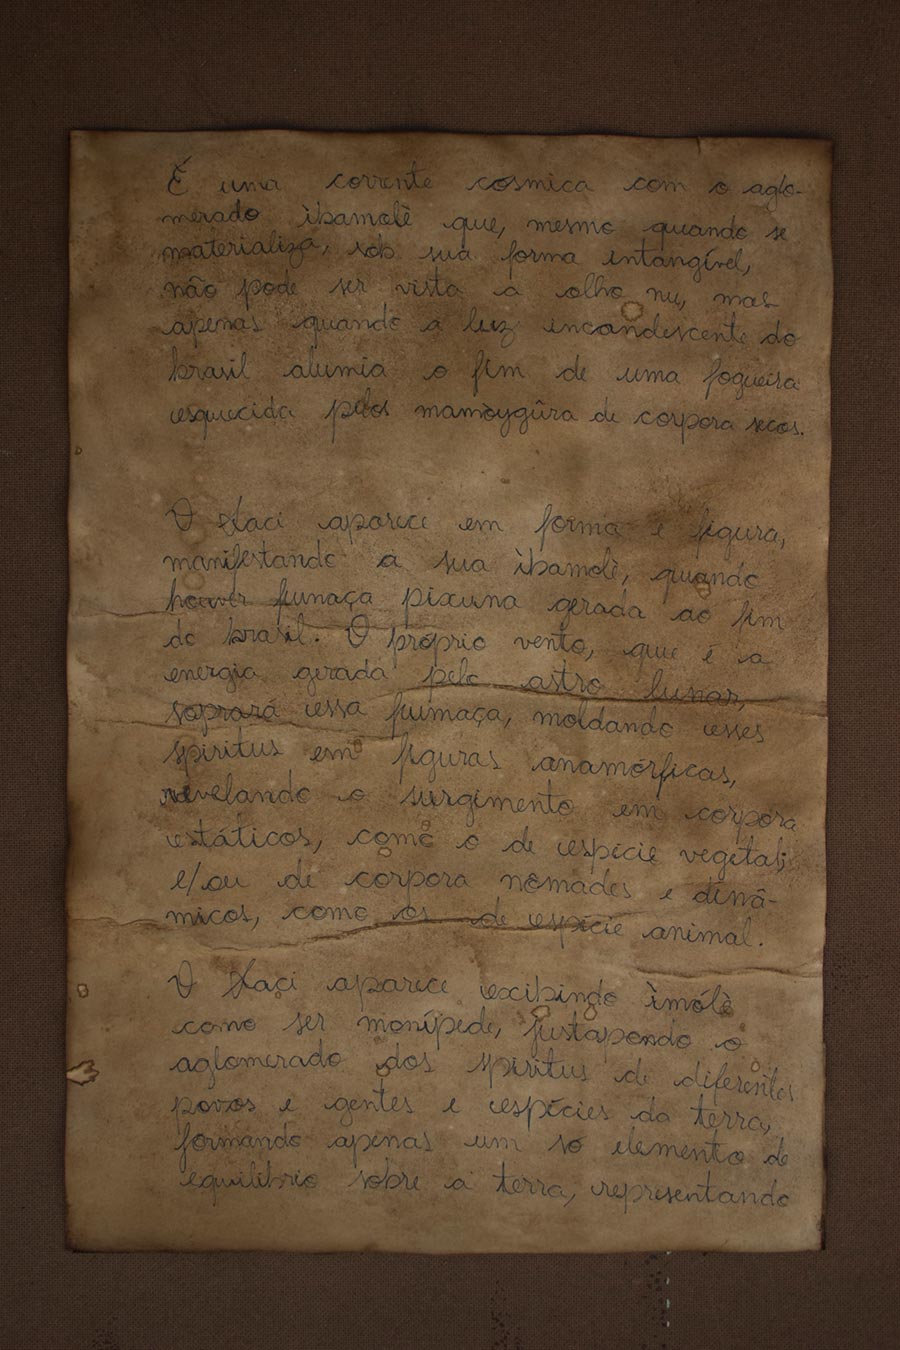 É uma corrente cósmica com o aglo-
merado ìbamolè que, mesmo quando se
materializa, sob sua forma intangível,
não pode ser vista a olho nu, mas
apenas quando a luz incandescente do
brasil alumia o fim de uma fogueira
esquecida pelos mamòygûra de corpora secos.
O Xaci aparece em forma e figura,
manifestando a sua ìbamolè, quando
houver fumaça pixuna gerada ao fim
do brasil. O próprio vento, que é a
energia gerada pelo astro lunar,
soprará essa fumaça, moldando esses
spiritus em figuras anamórficas,
revelando o surgimento em corpora
estáticos, como o de espécie vegetal;
e/ou de corpora nômades e dinâ-
micos, como os de espécie animal.
O Xaçi aparece exibindo ìmólè
como ser monípede, justapondo o
aglomerado dos spiritus de diferentes
povos e gentes e espécies da terra,
formando apenas um só elemento de
equilíbrio sobre a terra, representando